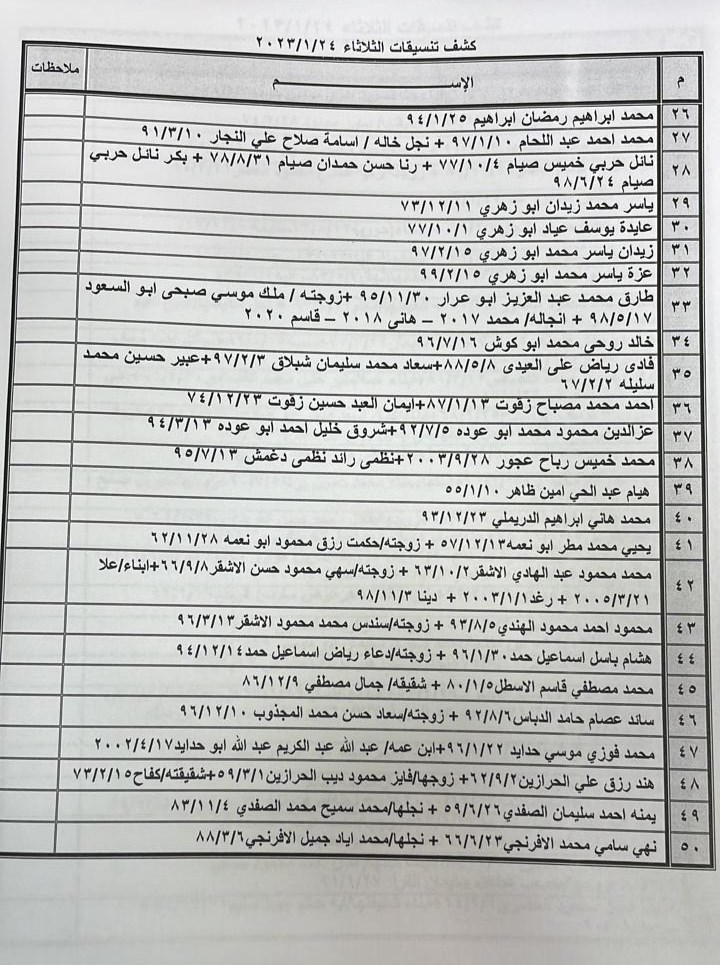 كشف تنسيقات الثلاثاء ٢٠٢٣/١/٢٤
م الإســـــم ملاحظات
٢٦ محمد ابراهيم رمضان ابراهيم ٩٤/١/٢٥
٢٧ محمد احمد عبد اللحام ٩٧/١/١٠ + نجل خاله / اسامة صلاح علي النجار ٩١/٣/١٠
٢٨ نائل حربي خميس صيام ٧٧/١٠/٤ + رنا حسن حمدان صيام ٧٨/٨/٣١ + بكر نائل حربي
صيام ٩٨/٦/٢٤
٢٩ ياسر محمد زيدان ابو زهري ٧٣/١٢/١١
٣٠ عايدة يوسف عياد ابو زهري ٧٧/١٠/١
٣١ زيدان ياسر محمد ابو زهري ٩٧/٢/١٥
٣٢ عزة ياسر محمد ابو زهري ٩٩/٢/١٥
٣٣ طارق محمد عبد العزيز ابو عرار ٩٥/١١/٣٠ +زوجته / ملك موسي صبحى ابو السعود
٩٨/٥/١٧ + انجاله/ محمد ٢٠١٧ – هانى ٢٠١٨ – قاسم ٢٠٢٠
٣٤ خالد روحى محمد ابو كوش ٩٦/٧/١٦
٣٥ فادى رياض على العيدى ٨٨/٥/٨+سعاد محمد سليمان شبلاق ٩٧/٢/٣+عبير حسين محمد
سليله ٦٧/٢/٢
٣٦ احمد محمد مصباح زقوت ٨٧/١/١٣+ايمان العبد حسين زقوت ٧٤/١٢/٢٣
٣٧ عزالدين محمود محمد ابو عوده ٩٢/٧/٥+شروق خليل احمد ابو عوده ٩٤/٣/١٣
٣٨ محمد خميس رباح عجور ٢٠٠٣/٩/٢٨+نظمى رائد نظمى دغمش ٩٥/٧/١٣
٣٩ هيام عبد الحي امين ظاهر ٥٥/١/١٠
٤٠ محمد هاني ابراهيم الدريملي ٩٣/١٢/٢٣
٤١ يحيي محمد مطر ابو نعمه٥٧/١٢/١٣ + زوجته/حكمت رزق محمود ابو نعمه ٦٢/١١/٢٨
٤٢ محمد محمود عبد الهادي الاشقر٦٣/١٠/٢ + زوجته/سهي محمود حسن الاشقر٦٦/٩/٨+ابناء/علا
٢٠٠٥/٣/٢١ + رغد٢٠٠٣/١/١ + دينا ٩٨/١١/٣
٤٣ محمود احمد محمود الهندي٩٣/٨/٥ + زوجته/سندس محمد محمود الاشقر٩٦/٣/١٣
٤٤ هشام باسل اسماعيل حمد٩٦/١/٣٠ + زوجته/دعاء رياض اسماعيل حمد٩٤/١٢/١٤
٤٥ محمد مصطفي قاسم الاسطل٨٠/١/٥ + شقيقه/ جمال مصطفي ٨٦/١٢/٩
٤٦ سائد عصام حامد الدباس٩٢/٨/٦ + زوجته/سعاد حسن محمد المجذوب ٩٦/١٢/١٠
٤٧ محمد فوزي موسي حدايد ٩٦/١/٢٢+ابن عمه/ عبد الله عبد الكريم عبد الله ابو حدايد٢٠٠٢/٤/١٧
٤٨ هند رزق علي الحرازين٦٢/٩/٢+ زوجها/فايز محمود ديب الحرازين٥٩/٣/١+شقيقته/كفاح٧٣/٢/١٥
٤٩ يمنه احمد سليمان الصفدي٥٩/٦/٢٦ + نجلها/محمد سميح محمد الصفدي ٨٣/١١/٤
٥٠ نهي سامي محمد الافرنجي٦٦/٦/٢٣ + نجلها/محمد اياد جميل الافرنجي٨٨/٣/٦